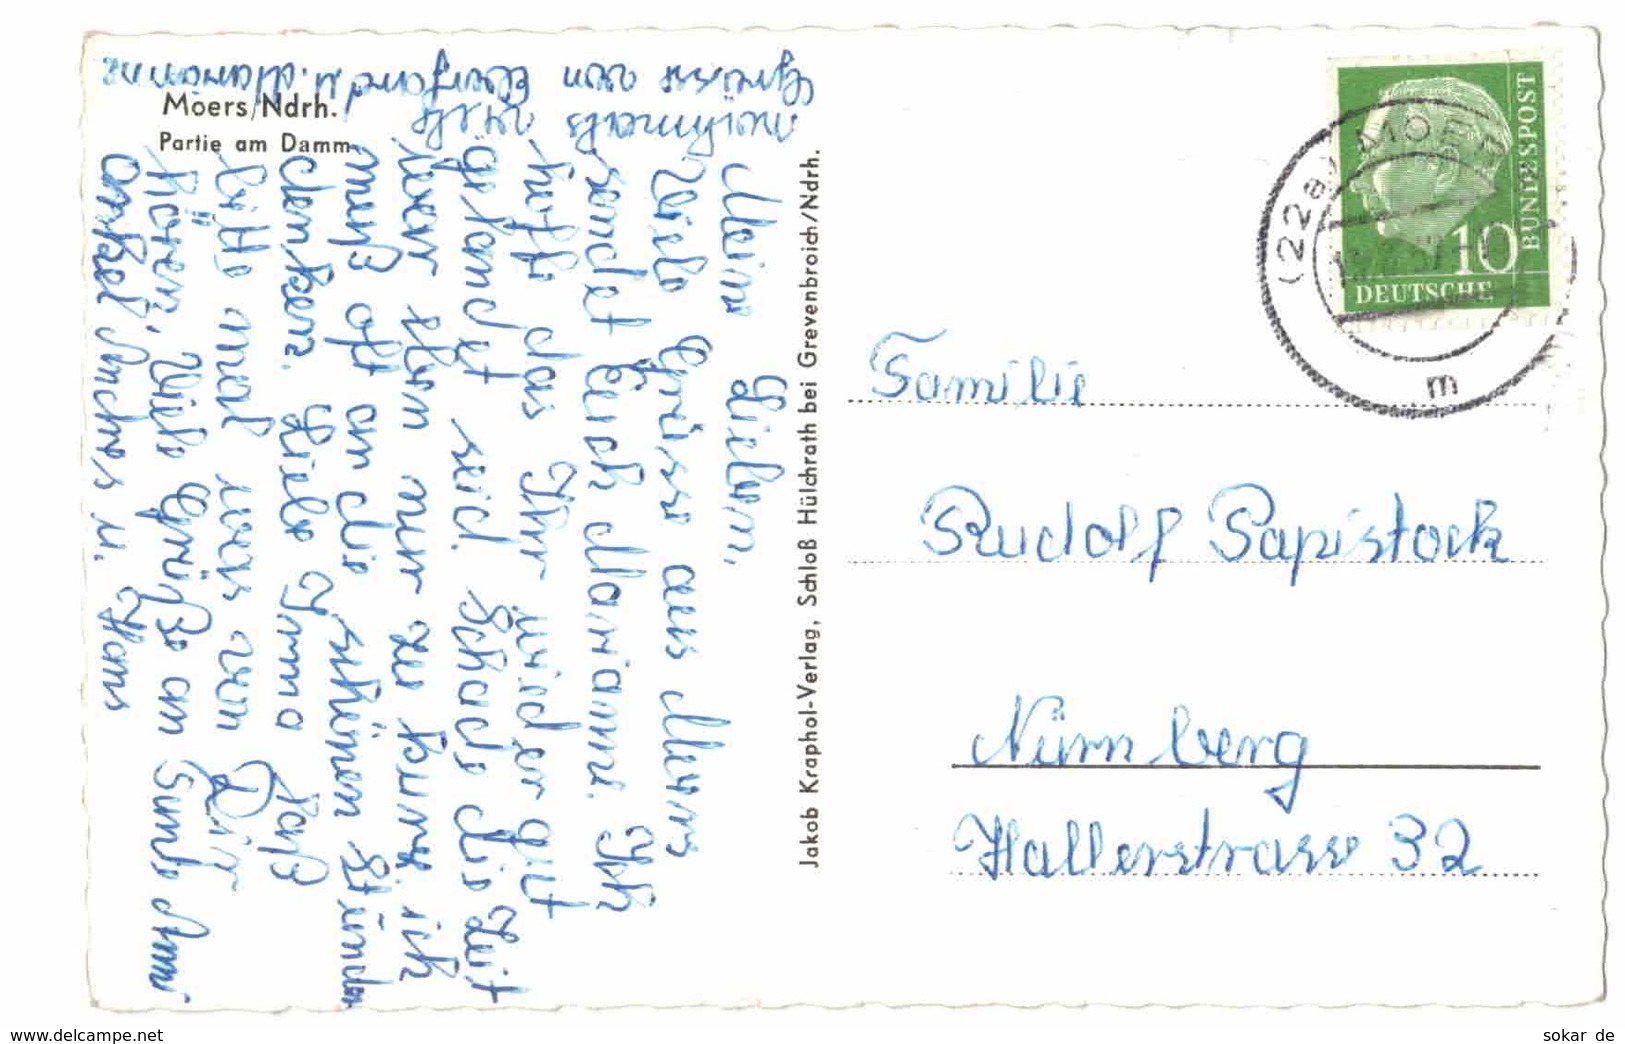 Moers/Ndrh.
Partie am Damm
Meine Lieben,
Viele Grüsse aus Moers
sendet Euch Marianne. Ich
hoffe das Ihr wieder gut
gelandet seid. Schade die Zeit
war eben nur zu kurz. ich
muß oft an die schönen Stunden
denken. Liebe Irma laß
bitte mal was von Dir
hören, Viele Grüße an
Onkel u. Hans
nochmals viele
Grüsse von u. Marianne
Jakob Kraphol-Verlag, Schloß Hülchrath bei Grevenbroich/Ndrh.
(22a) MOERS
m
10
DEUTSCHE
BUNDESPOST
Familie
Rudolf Papistock
Nürnberg
Hallerstrasse 32
www.delcampe.net
sokar de